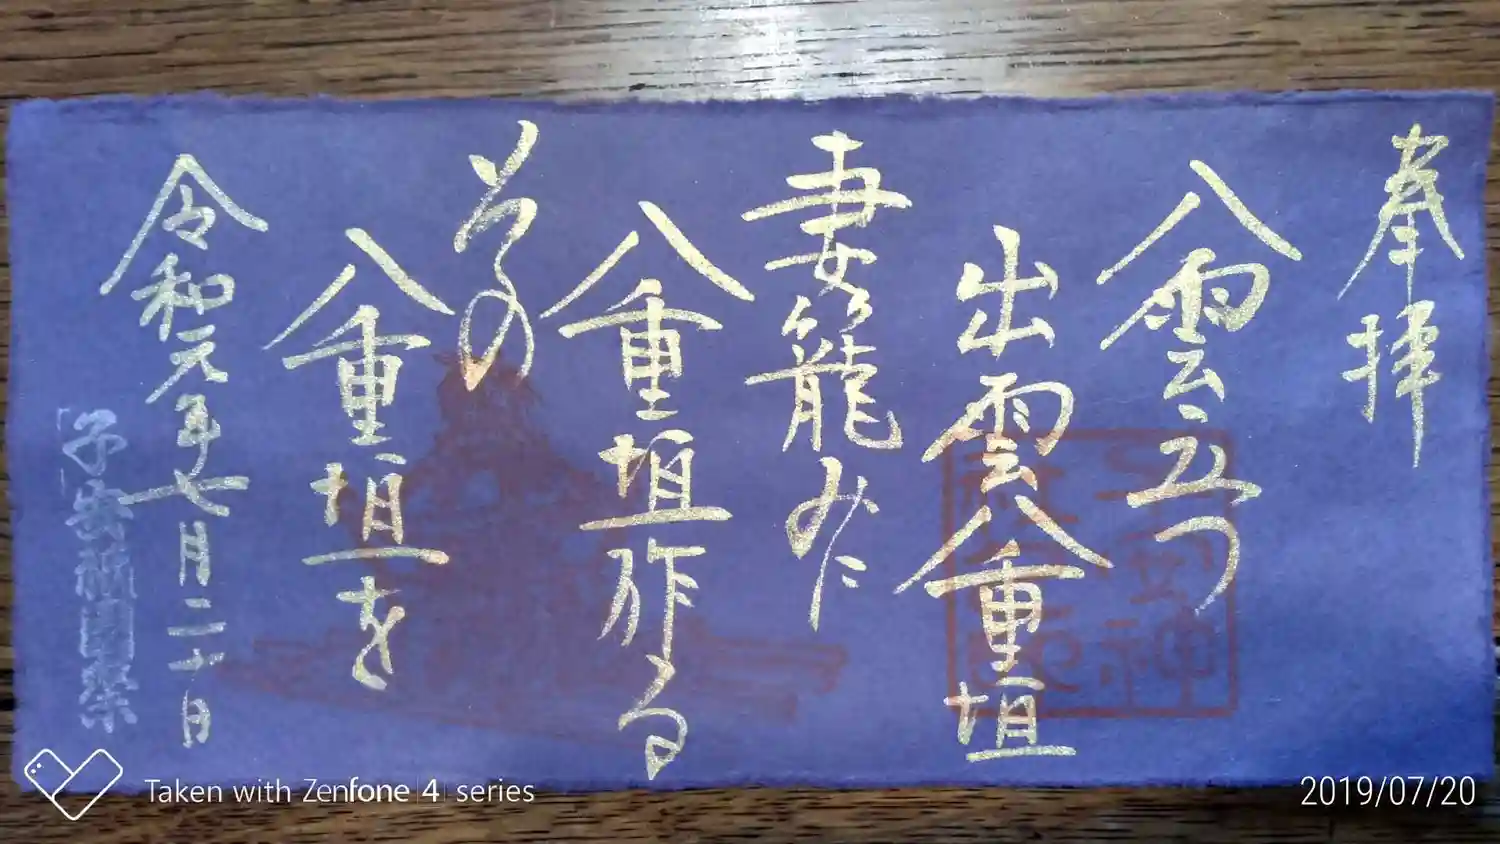 奉拝
八雲立つ
出雲八重垣
妻籠みに
八重垣作る
その
八重垣を
令和元年七月二十日
「子安祇園祭」
Taken with Zenfone 4 series
2019/07/20